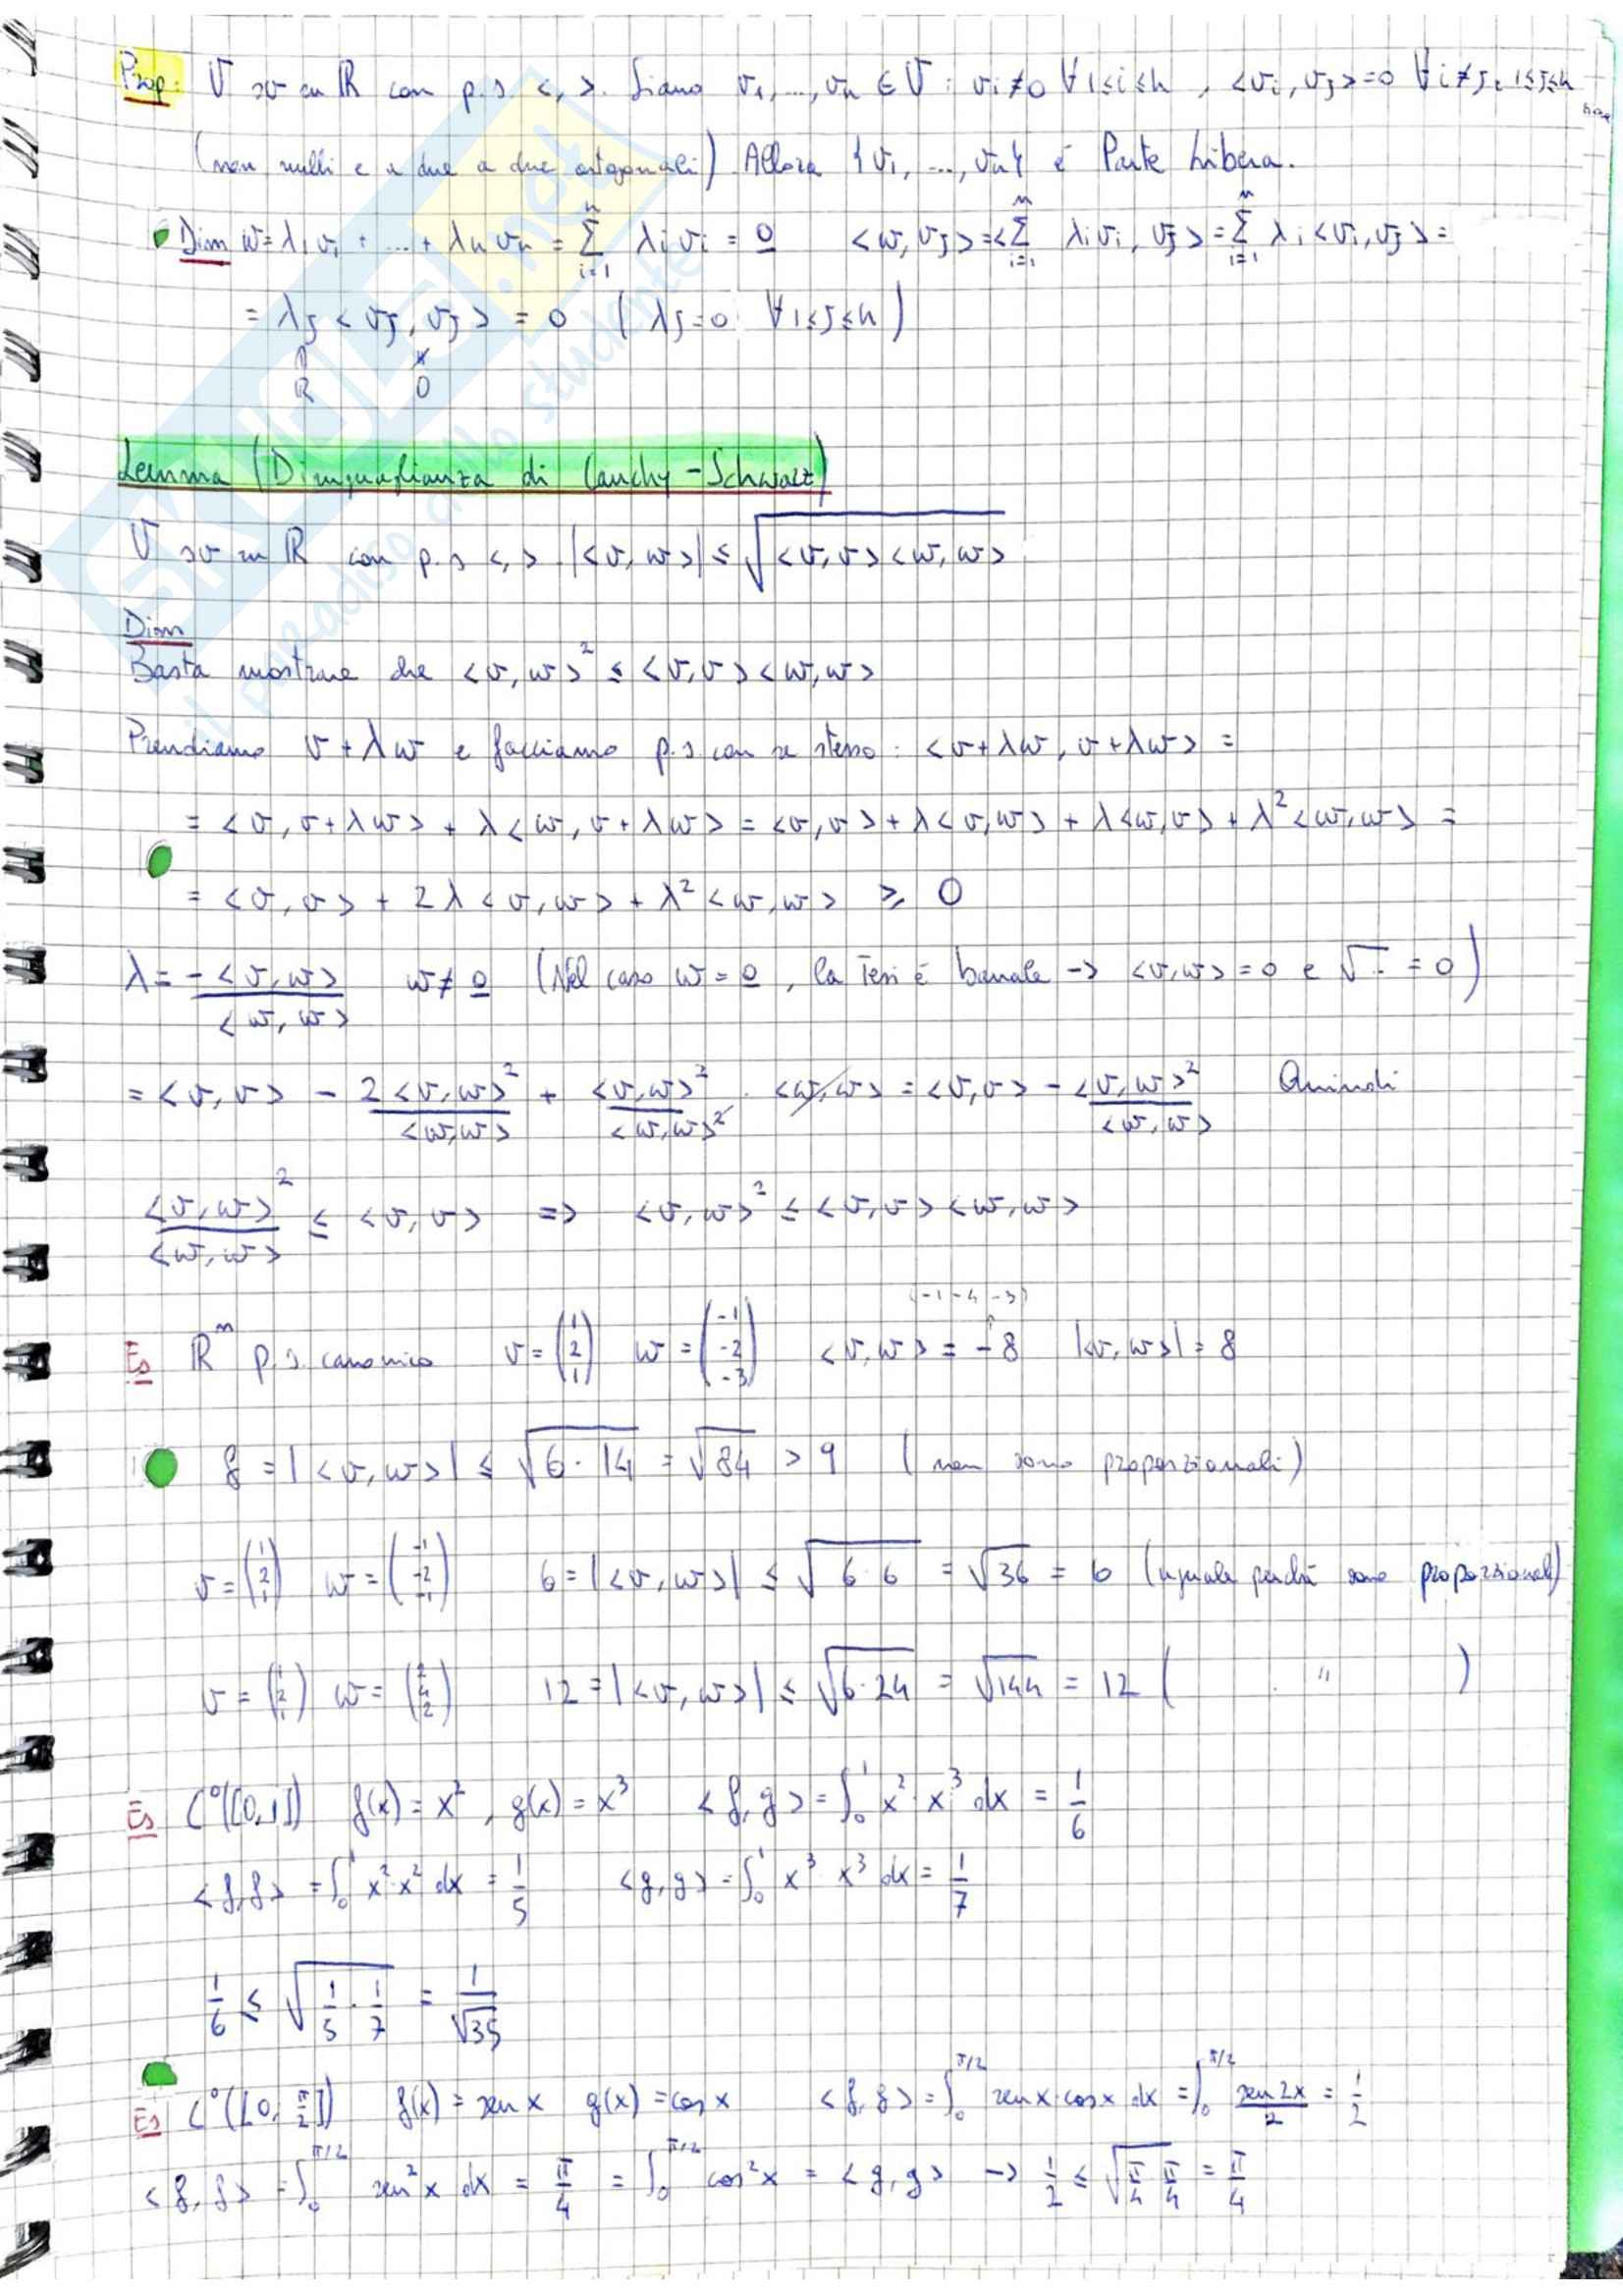 Prop: V sv su ℝ con p.s. <,>. Siano v₁, ..., vₙ ∈ V : vi ≠ 0 ∀ 1≤i≤n, <vi, vj> = 0 ∀ i≠j, 1≤j≤n
(non nulli e a due a due ortogonali). Allora {v₁, ..., vₙ} è Parte Libera.
Dim w = λ₁v₁ + ... + λₙvₙ = Σ_{i=1}^{n} λi vi = 0 <w, vj> = <Σ_{i=1}^{n} λi vi, vj> = Σ_{i=1}^{n} λi <vi, vj> =
= λj <vj, vj> = 0 (λj = 0 ∀ 1≤j≤n)
ℝ 0
Lemma (Disuguaglianza di Cauchy-Schwarz)
V sv su ℝ con p.s <,>. |<v, w>| ≤ √(<v, v> <w, w>)
Dim
Basta mostrare che <v, w>² ≤ <v, v> <w, w>
Prendiamo v + λw e facciamo p.s. con se stesso: <v + λw, v + λw> =
= <v, v + λw> + λ<w, v + λw> = <v, v> + λ<v, w> + λ<w, v> + λ²<w, w> =
= <v, v> + 2λ<v, w> + λ²<w, w> ≥ 0
λ = -<v, w>/<w, w> w ≠ 0 (Nel caso w = 0, la Tesi è banale -> <v, w> = 0 e √· = 0)
= <v, v> - 2<v, w>²/<w, w> + <v, w>²/<w, w>² · <w, w> = <v, v> - <v, w>²/<w, w> Quindi
<v, w>²/<w, w> ≤ <v, v> => <v, w>² ≤ <v, v> <w, w>
(-1 -4 -3)
Es ℝⁿ p.s. canonico v = (1 2 1) w = (-1 -2 -3) <v, w> = -8 |<v, w>| = 8
8 = |<v, w>| ≤ √(6 · 14) = √84 > 9 (non sono proporzionali)
v = (1 2 1) w = (-1 -2 -1) 6 = |<v, w>| ≤ √(6 · 6) = √36 = 6 (uguale perché sono proporzionali)
v = (1 2 1) w = (2 4 2) 12 = |<v, w>| ≤ √(6 · 24) = √144 = 12 ( " )
Es C⁰([0,1]) f(x) = x², g(x) = x³ <f, g> = ∫₀¹ x² · x³ dx = 1/6
<f, f> = ∫₀¹ x² · x² dx = 1/5 <g, g> = ∫₀¹ x³ · x³ dx = 1/7
1/6 ≤ √(1/5 · 1/7) = 1/√35
Es C⁰([0, π/2]) f(x) = sen x g(x) = cos x <f, g> = ∫₀^{π/2} sen x · cos x dx = ∫₀^{π/2} sen 2x/2 = 1/2
<f, f> = ∫₀^{π/2} sen² x dx = π/4 = ∫₀^{π/2} cos² x = <g, g> -> 1/2 ≤ √(π/4 · π/4) = π/4
SKUOLA.net
il paradiso dello studente